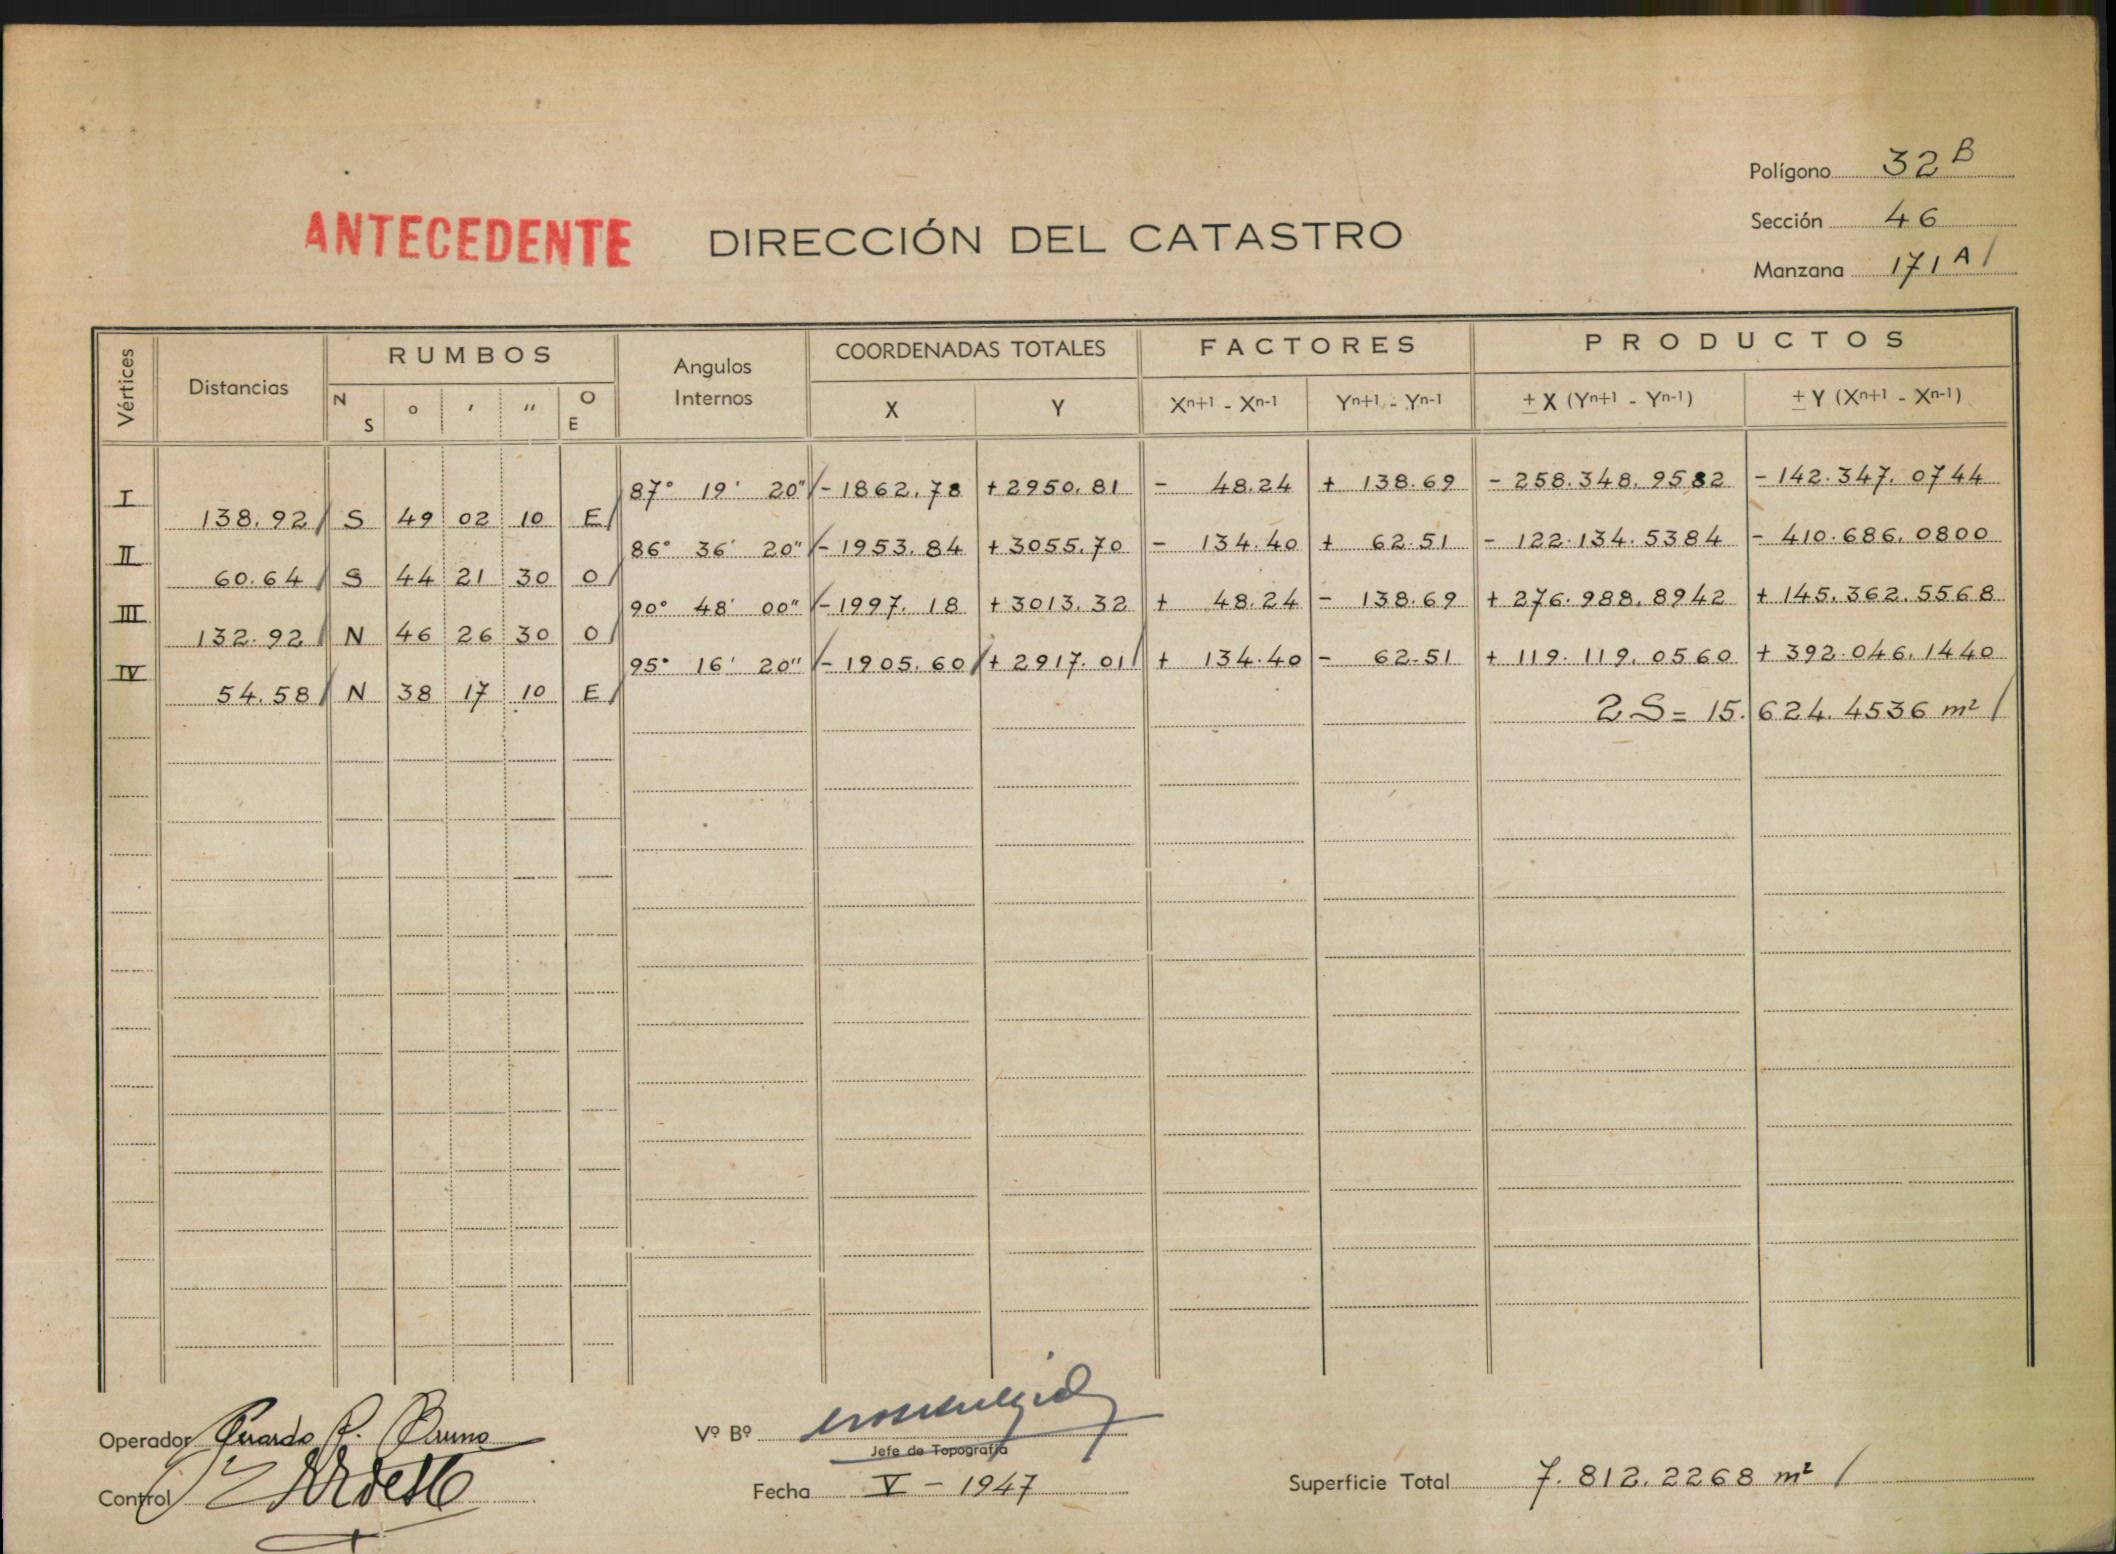 Polígono 32 B
Sección 46
Manzana 171 A /
ANTECEDENTE DIRECCIÓN DEL CATASTRO
Vértices Distancias RUMBOS Angulos Internos COORDENADAS TOTALES FACTORES PRODUCTOS
N S o ' " O E X Y Xn+1 - Xn-1 Yn+1 - Yn-1 ± X (Yn+1 - Yn-1) ± Y (Xn+1 - Xn-1)
I 87° 19' 20" / - 1862.78 + 2950.81 - 48.24 + 138.69 - 258.348.9582 - 142.347.0744
138.92 / S 49 02 10 E /
II 86° 36' 20" / - 1953.84 + 3055.70 - 134.40 + 62.51 - 122.134.5384 - 410.686.0800
60.64 / S 44 21 30 O /
III 90° 48' 00" / - 1997.18 + 3013.32 + 48.24 - 138.69 + 276.988.8942 + 145.362.5568
132.92 / N 46 26 30 O /
IV 95° 16' 20" / - 1905.60 / + 2917.01 / + 134.40 - 62.51 + 119.119.0560 + 392.046.1440
54.58 / N 38 17 10 E /
2S = 15.624.4536 m² /
Operador P. Bruno
Control
Vº Bº
Jefe de Topografía
Fecha V - 1947
Superficie Total 7.812.2268 m² /